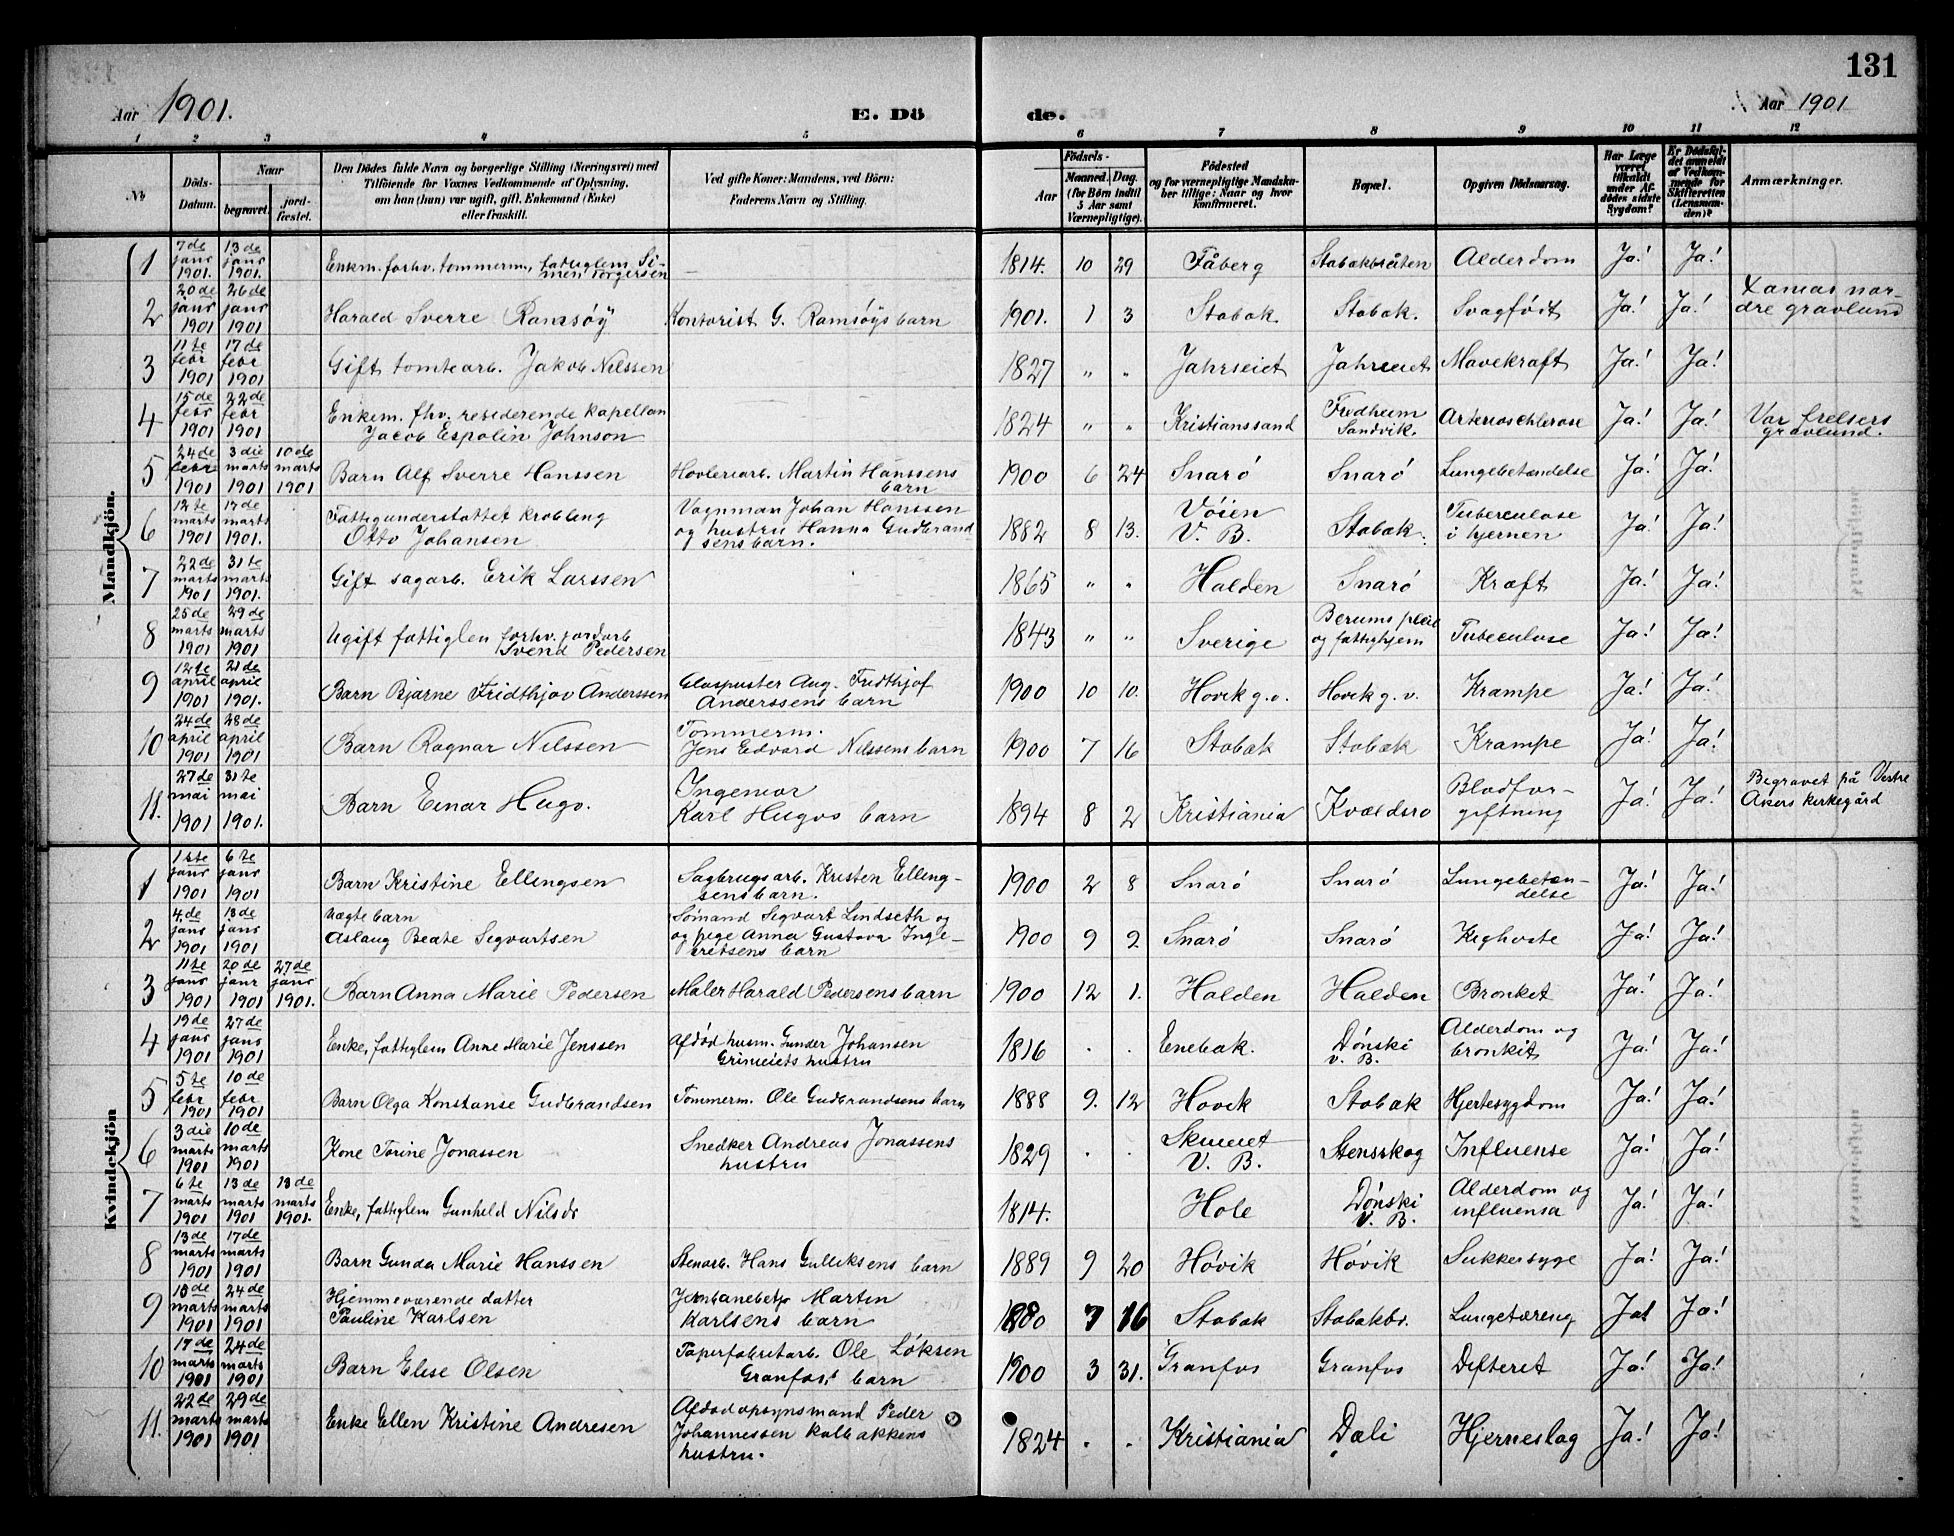 131
Aar 1901.
E. Dö
de.
Aar 1901
1 2 3 4 5 6 7 8 9 10 11 12
No
Döds-Datum.
Naar
begravet.
jord-fæstet.
Den Dödes fulde Navn og borgerlige Stilling (Næringsvei) med
Tilföiende for Voxnes Vedkommende af Oplysning,
om han (hun) var ugift, gift, Enkemand (Enke)
eller fraskilt.
Ved gifte Koner: Mandens, ved Börn:
Faderens Navn og Stilling.
Födsels-
Aar
Maaned. Dag.
(for Börn indtil
5 Aar samt
Værnepligtige).
Födested
og for værnepligtige Mandska-
ber tillige: Naar og hvor
konfirmeret.
Bopæl.
Opgiven Dödsaarsag.
Har Læge
været
tilkaldt
under Af-
dödes sidste
Sygdom?
Er Dödsfal-
det anmeldt
af Vedkom-
mende for
Skifteretten
(Lensman-
den)?
Anmærkninger.
Mandkjön.
1 7de janr 1901. 13de janr 1901. Enkem. forhv. tommerm. fattiglem Si-
men Torgersen 1814. 10 29 Fåberg Stabækbråten Alderdom Ja! Ja!
2 20de janr 1901 26de janr 1901 Harald Sverre Ramsöy Kontorist G. Ramsöys barn 1901. 1 3 Stabæk Stabæk. Svagfödt Ja! Ja! nor-
dre gravlund
3 11te febr 1901 17de febr 1901 Gift tomtearb. Jakob Nilssen 1827 " " Jahrseiet Jahrseiet Mavekræft Ja! Ja!
4 15de febr 1901 22de febr 1901 Enkem. fhv. residerende kapellan
Jacob Espolin Johnson 1824 " " Kristianssand Fredheim
Sandvik. Arterioschlerose Ja! Ja! Vor frelsers
gravlund.
5 24de febr 1901 3die marts 1901 10de marts 1901 Barn Alf Sverre Hanssen Hövleriarb. Martin Hanssens
barn 1900 6 24 Snarö Snarö Lungebetændelse Ja! Ja!
6 12te marts 1901 17de marts 1901. Fattigunderstöttet krobling
Otto Johansen Vognman Johan Hanssen
og hustru Hanna Gudbrand
sens barn. 1882 8 13. Vöien
V. B. Stabæk. Tuberculose
i hjernen Ja! Ja!
7 22de marts 1901 31te marts 1901. Gift sagarb. Erik Larssen 1865 " " Halden Snarö Kræft Ja! Ja!
8 25de marts 1901 29de marts 1901 Ugift fattiglem forhv. jordarb
Svend Pedersen 1843 " " Sverige Berums pleie
og fattighjem Tubeculose Ja! Ja!
9 12te april 1901 21de april 1901. Barn Bjarne Fridthjov Anderssen Glaspuster Aug. Fridthjof
Anderssens barn 1900 10 10. Hövik g.v. Hövik g.v. Krampe Ja! Ja!
10 24de april 1901 28de april 1901 Barn Ragnar Nilssen Tömmerm.
Jens Edvard Nilssens barn 1900 7 16 Stabæk Stabæk Krampe Ja! Ja!
11. 27de mai 1901 31te mai 1901. Barn Einar Hugo. Ingeniör
Karl Hugos barn 1894 8 2 Kristiania Kvældsro Blodfor-
giftning Ja! Ja! Begravet på Vestre
Akers kirkegård
Kvindekjön
1 1ste janr 1901 6te janr 1901 Barn Kristine Ellingsen Sagbrugsarb. Kristen Elling-
sens barn. 1900 2 8 Snarö Snarö Lungebetæn-
delse Ja! Ja!
2 4de janr 1901 13de janr 1901 Uægte barn
Aslaug Beate Segvartsen Sömand Segvart Lindseth og
og pege Anna Gustava Inge-
bretsens barn 1900 9 9. Snarö Snarö Kighoste Ja! Ja!
3 11te janr 1901 20de janr 1901 27de janr 1901. Barn Anna Marie Pedersen Maler Harald Pedersens barn 1900 12 1. Halden Halden Bronket Ja! Ja!
4 19de janr 1901 27de janr 1901 Enke, fattiglem Anne Marie Jenssen Afdöd husm. Gunder Johansen
Grinieiets hustru 1816 . . Enebak. Dönski
V. B. Alderdom og
bronkit Ja! Ja!
5 5te febr 1901 10de febr 1901 Barn Olga Konstanse Gudbrandsen Tömmerm. Ole Gudbrandsens barn 1888 9. 12 Hövik Stabæk Hjertesygdom Ja! Ja!
6 3die marts 1901 10de marts 1901 Kone Torine Jonassen Snedker Andreas Jonassens
hustru 1829 . . Skuiet
V. B. Stensskog Influense Ja! Ja!
7 6te marts 1901 13de marts 1901 13de marts 1901. Enke, fattiglem Gunhild Nilsdr 1814. Hole Dönski
V. B. Alderdom og
influensa Ja! Ja!
8 13de marts 1901 17de marts 1901 Barn Gunda Marie Hanssen Stenarb. Hans Gulliksens barn 1889 9 20 Hövik Hövik Sukkersyge Ja! Ja!
9 18de marts 1901 24de marts 1901 Hjemmeværende datter
Pauline Karlsen Jernbanebetj. Martin
Karlsens barn 1880 7 16 Stabæk Stabækbr. Lungetæring Ja! Ja!
10 17de marts 1901 24de marts 1901 Barn Elise Olsen Papirfabrikarb. Ole Löksen
Granfos,s barn 1900 3 31. Granfos Granfos Defteret Ja! Ja!
11. 22de marts 1901 29de marts 1901 Enke Ellen Kristine Andresen Afdöd opsynsmand Peder
Johannessen Kalbakkens
hustru. 1824 . . Kristiania Dæli Hjerneslag Ja! Ja!